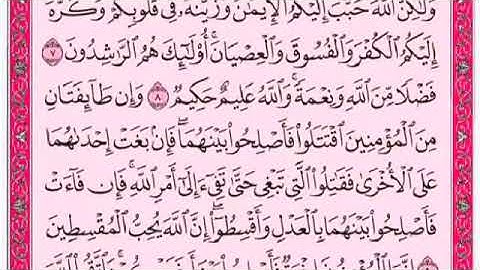 وَلَٰكِنَّ ٱللَّهَ حَبَّبَ إِلَيْكُمُ ٱلْإِيمَٰنَ وَزَيَّنَهُۥ فِى قُلُوبِكُمْ وَكَرَّهَ
إِلَيْكُمُ ٱلْكُفْرَ وَٱلْفُسُوقَ وَٱلْعِصْيَانَ ۚ أُو۟لَٰٓئِكَ هُمُ ٱلرَّٰشِدُونَ ٧
فَضْلًا مِّنَ ٱللَّهِ وَنِعْمَةً ۚ وَٱللَّهُ عَلِيمٌ حَكِيمٌ ٨ وَإِن طَآئِفَتَانِ
مِنَ ٱلْمُؤْمِنِينَ ٱقْتَتَلُوا۟ فَأَصْلِحُوا۟ بَيْنَهُمَا ۖ فَإِنۢ بَغَتْ إِحْدَىٰهُمَا
عَلَى ٱلْأُخْرَىٰ فَقَٰتِلُوا۟ ٱلَّتِى تَبْغِى حَتَّىٰ تَفِىٓءَ إِلَىٰٓ أَمْرِ ٱللَّهِ ۚ فَإِن فَآءَتْ
فَأَصْلِحُوا۟ بَيْنَهُمَا بِٱلْعَدْلِ وَأَقْسِطُوٓا۟ ۖ إِنَّ ٱللَّهَ يُحِبُّ ٱلْمُقْسِطِينَ